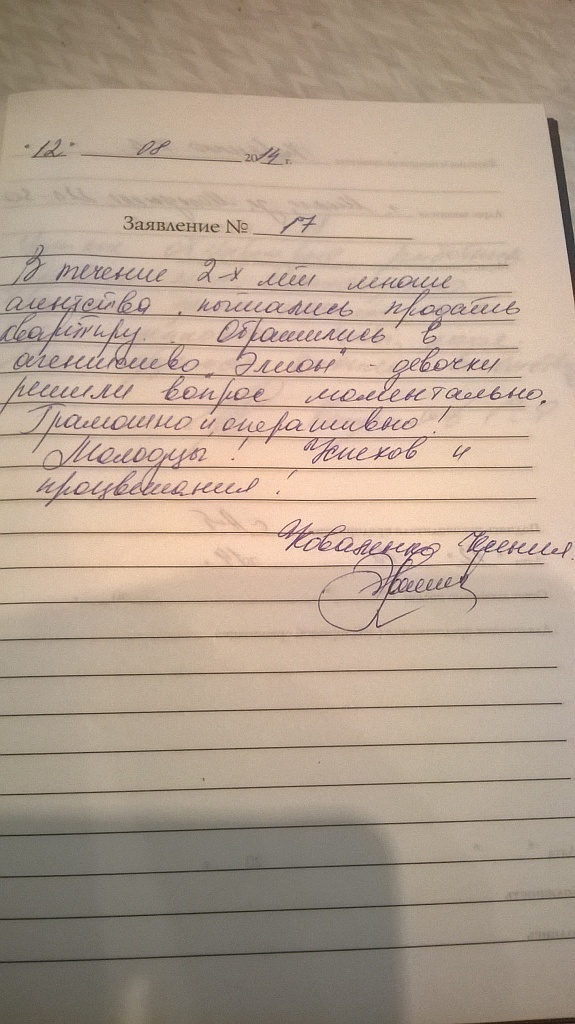 "12" 08 2014 г.
Заявление № 17
В течение 2-х лет многие
агентства пытались продать
квартиру. Обратились в
агентство "Элион" - девочки
решили вопрос моментально.
Грамотно и оперативно!
Молодцы! Успехов и
процветания!
Коваленко Ксения.